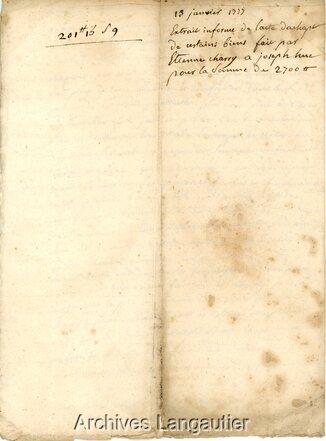 201 tt 13 s 9
13 janvier 1777
Extrait informe de l'acte dachapt
de certains biens fait par
Etienne charry a joseph
pour la somme de 2700 tt
Archives Langautier